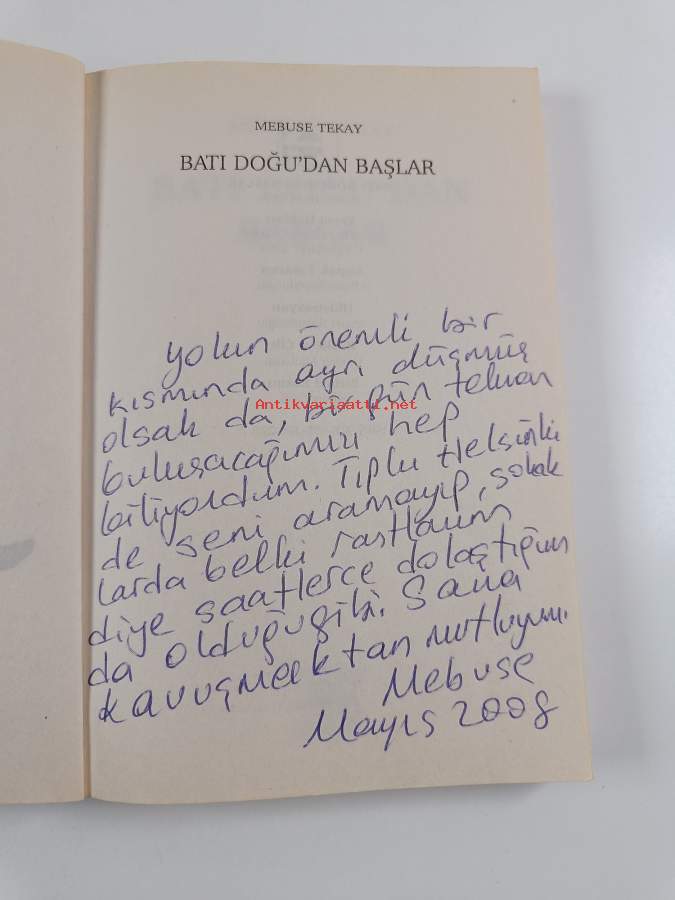 MEBUSE TEKAY
BATI DOĞU'DAN BAŞLAR
Yolun önemli bir
kısmında ayrı düşmüş
olsak da, birgün tekrar
Antikvariaatti.net
buluşacağımızı hep
biliyordum. Tıpkı Helsinki
de seni aramayıp, sokak
larda belki rastlarım
diye saatlerce dolaştığım
da olduğu gibi. Sana
kavuşmaktan mutluyum.
Mebuse
Mayıs 2008